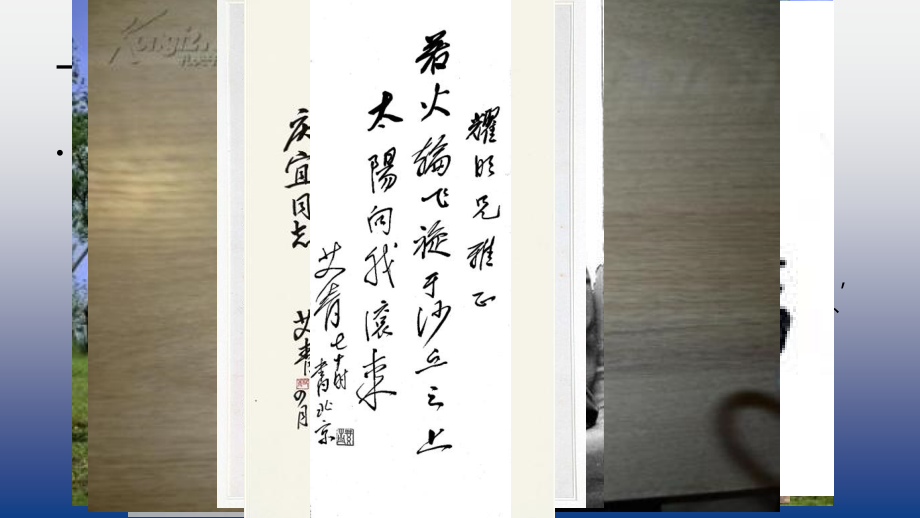 耀明兄雅正
若火輪飞旋于沙丘之上
太陽向我滚来
艾青七十时
书北京
庆宜同志
艾青
四月